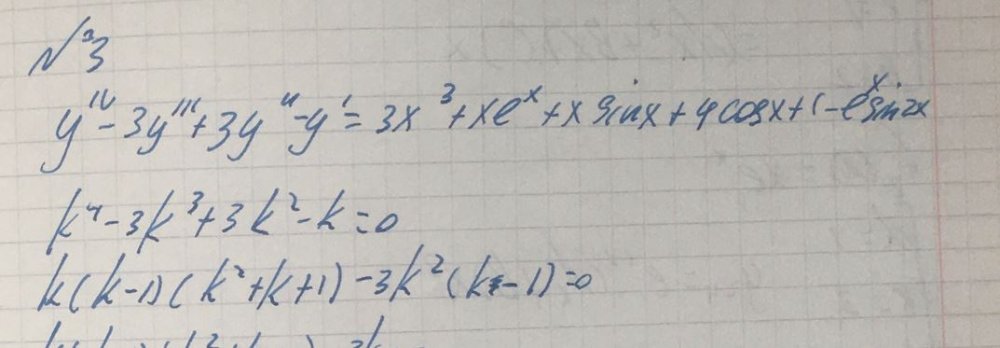 №3
y^IV - 3y''' + 3y'' - y' = 3x^3 + xe^x + x sinx + 4cosx + (-e^x sin2x
k^4 - 3k^3 + 3k^2 - k = 0
k(k-1)(k^2+k+1) - 3k^2(k-1) = 0